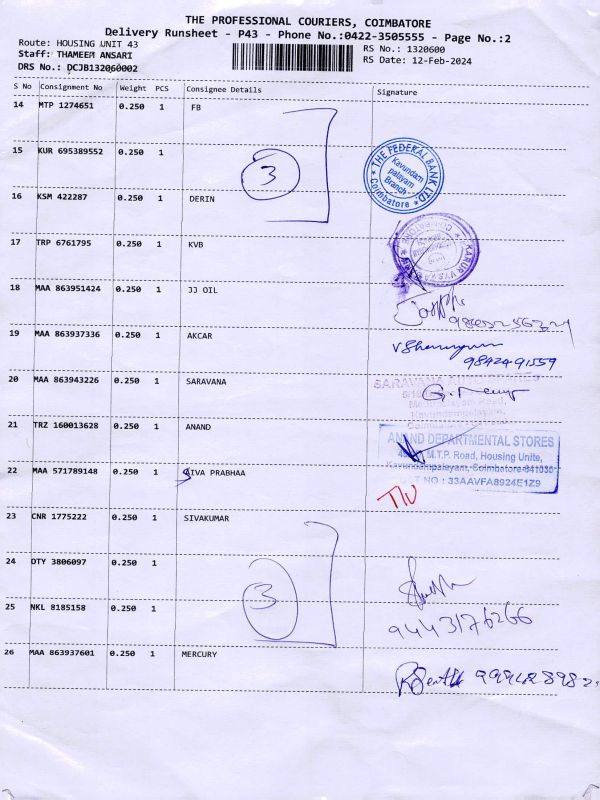 THE PROFESSIONAL COURIERS, COIMBATORE
Delivery Runsheet - P43 - Phone No.:0422-3505555 - Page No.:2
Route: HOUSING UNIT 43
RS No.: 1320600
Staff: THAMEEM ANSARI
RS Date: 12-Feb-2024
DRS No.: DCJB132060002
S No Consignment No Weight PCS Consignee Details Signature
14 MTP 1274651 0.250 1 FB
15 KUR 695389552 0.250 1
3
THE FEDERAL BANK LTD.
Kavundam
palayam
Branch
Coimbatore
16 KSM 422287 0.250 1 DERIN
17 TRP 6761795 0.250 1 KVB
KARUR VYSYA
18 MAA 863951424 0.250 1 JJ OIL
19 MAA 863937336 0.250 1 AKCAR
9842491559
20 MAA 863943226 0.250 1 SARAVANA
SARAVANA
Kavundampalayam,
21 TRZ 160013628 0.250 1 ANAND
ANAND DEPARTMENTAL STORES
M.T.P. Road, Housing Unite,
Kavundampalayam, Coimbatore-641030
T NO : 33AAVFA8924E1Z9
22 MAA 571789148 0.250 1 SIVA PRABHAA
23 CNR 1775222 0.250 1 SIVAKUMAR
24 OTY 3806097 0.250 1
3
25 NKL 8185158 0.250 1
9443176266
26 MAA 863937601 0.250 1 MERCURY